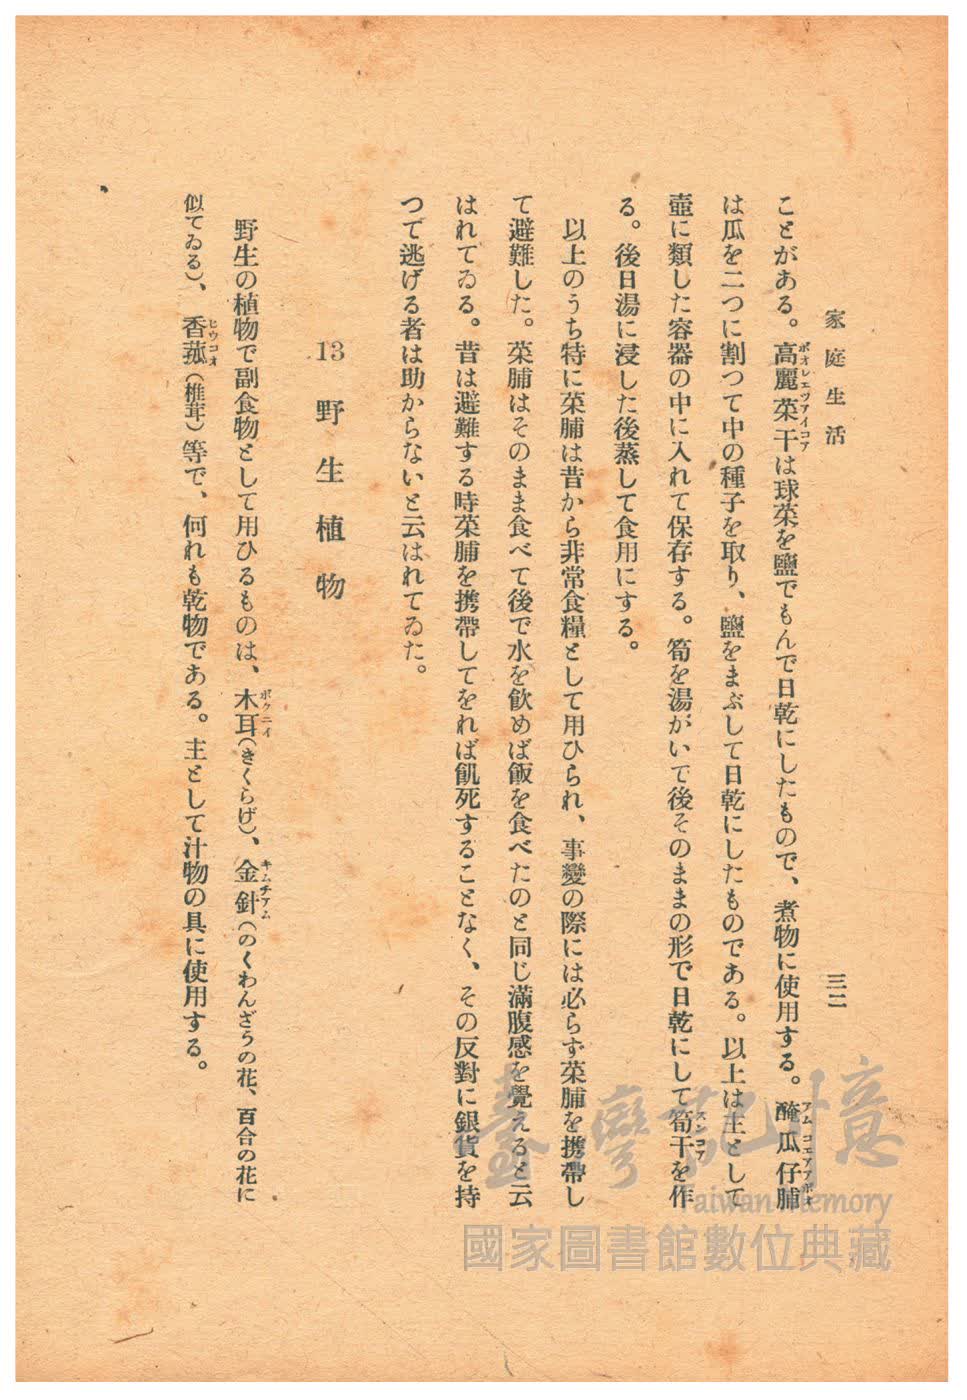 家庭生活
三二
ことがある。高麗菜干は球菜を鹽でもんで日乾にしたもので、煮物に使用する。醃瓜仔脯
ポオレエヅアイコア
アムコエアアポオ
は瓜を二つに割つて中の種子を取り、鹽をまぶして日乾にしたものである。以上は主として
壺に類した容器の中に入れて保存する。筍を湯がいて後そのままの形で日乾にして筍干を作
スンコア
る。後日湯に浸した後蒸して食用にする。
以上のうち特に菜脯は昔から非常食糧として用ひられ、事變の際には必らず菜脯を携帶し
て避難した。菜脯はそのまま食べて後で水を飮めば飯を食べたのと同じ滿腹感を覺えると云
はれてゐる。昔は避難する時菜脯を携帶してをれば飢死することなく、その反對に銀貨を持
つて逃げる者は助からないと云はれてゐた。
13 野生植物
野生の植物で副食物として用ひるものは、木耳(きくらげ)、金針(のくわんざうの花、百合の花に
ボクニイ
キムチアム
似てゐる)、香菰(椎茸)等で、何れも乾物である。主として汁物の具に使用する。
ヒウコオ
臺灣記憶
Taiwan Memory
國家圖書館數位典藏